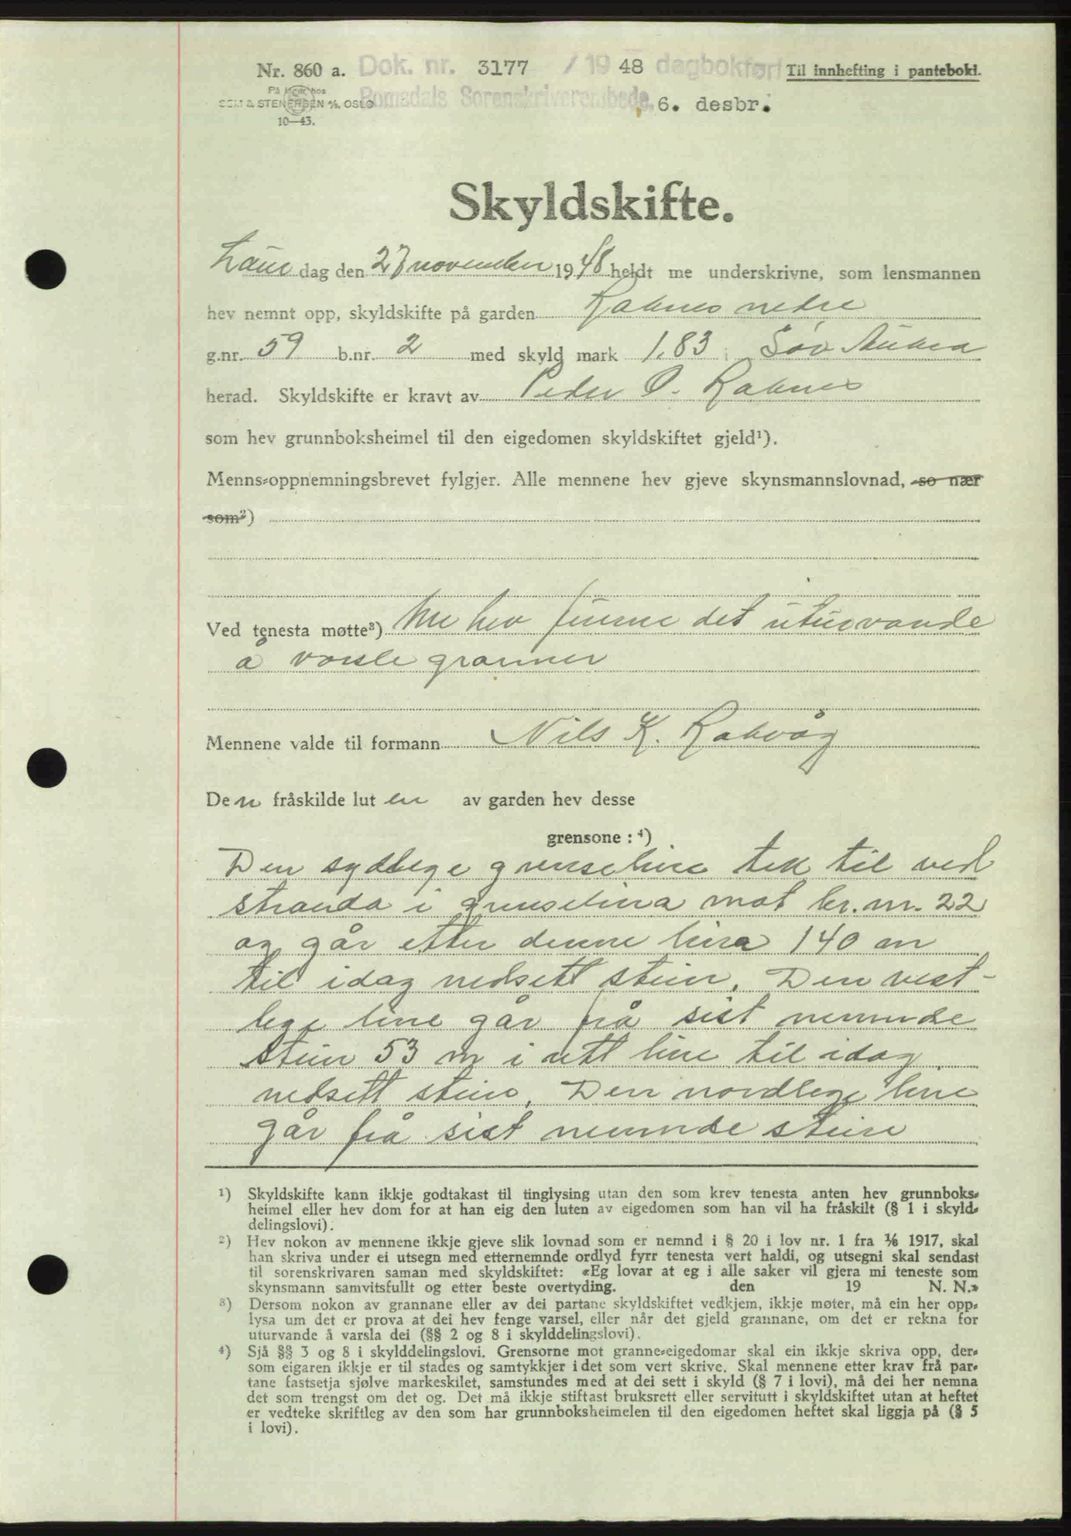 Nr. 860 a. Dok. nr. 3177 / 1948 dagbokført Til innhefting i panteboki.
På lager hos
SEM & STENERSEN A/S, OSLO Romsdals Sorenskriverembede. 6. desbr.
10—43.
Skyldskifte.
Laur dag den 27 november 1948 heldt me underskrivne, som lensmannen
hev nemnt opp, skyldskifte på garden Raknes nedre
g.nr. 59 b.nr. 2 med skyld mark 1.83 i Sør Aukra
herad. Skyldskifte er kravt av Peder O. Raknes
som hev grunnboksheimel til den eigedomen skyldskiftet gjeld¹).
Menns-oppnemningsbrevet fylgjer. Alle mennene hev gjeve skynsmannslovnad, so nær
som²)
Ved tenesta møtte³) Me hev funne det uturvande
å varsle granner
Mennene valde til formann Nils K. Rakvåg
Den fråskilde lut en av garden hev desse
grensone : ⁴)
Den sydlege grenseline tek til ved
stranda i grenselina mot br. nr. 22
og går etter denne lina 140 m
til idag nedsett stein. Den vest-
lege line går frå sist nemnde
stein 53 m i rett line til idag
nedsett stein. Den nordlege line
går frå sist nemnde stein
¹) Skyldskifte kann ikkje godtakast til tinglysing utan den som krev tenesta anten hev grunnboks-
heimel eller hev dom for at han eig den luten av eigedomen som han vil ha fråskilt (§ 1 i skyld-
delingslovi).
²) Hev nokon av mennene ikkje gjeve slik lovnad som er nemnd i § 20 i lov nr. 1 fra 1/6 1917, skal
han skriva under ei utsegn med etternemnde ordlyd fyrr tenesta vert haldi, og utsegni skal sendast
til sorenskrivaren saman med skyldskiftet: «Eg lovar at eg i alle saker vil gjera mi teneste som
skynsmann samvitsfullt og etter beste overtyding. den 19 N. N.»
³) Dersom nokon av grannane eller av dei partane skyldskiftet vedkjem, ikkje møter, må ein her opp-
lysa um det er prova at dei hev fenge varsel, eller når det gjeld grannane, om det er rekna for
uturvande å varsla dei (§§ 2 og 8 i skylddelingslovi).
⁴) Sjå §§ 3 og 8 i skylddelingslovi. Grensorne mot granne-eigedomar skal ein ikkje skriva opp, der-
som eigaren ikkje er til stades og samtykkjer i det som vert skrive. Skal mennene etter krav frå par-
tane fastsetja sjølve markeskilet, samstundes med at dei sett i skyld (§ 7 i lovi), må dei her nemna
det som trengst om det og. Det må ikkje stiftast bruksrett eller servitutt i skyldskiftet utan at heftet
er vedteke skriftleg av den som har grunnboksheimelen til den eigedomen heftet skal liggja på (§ 5
i lovi).